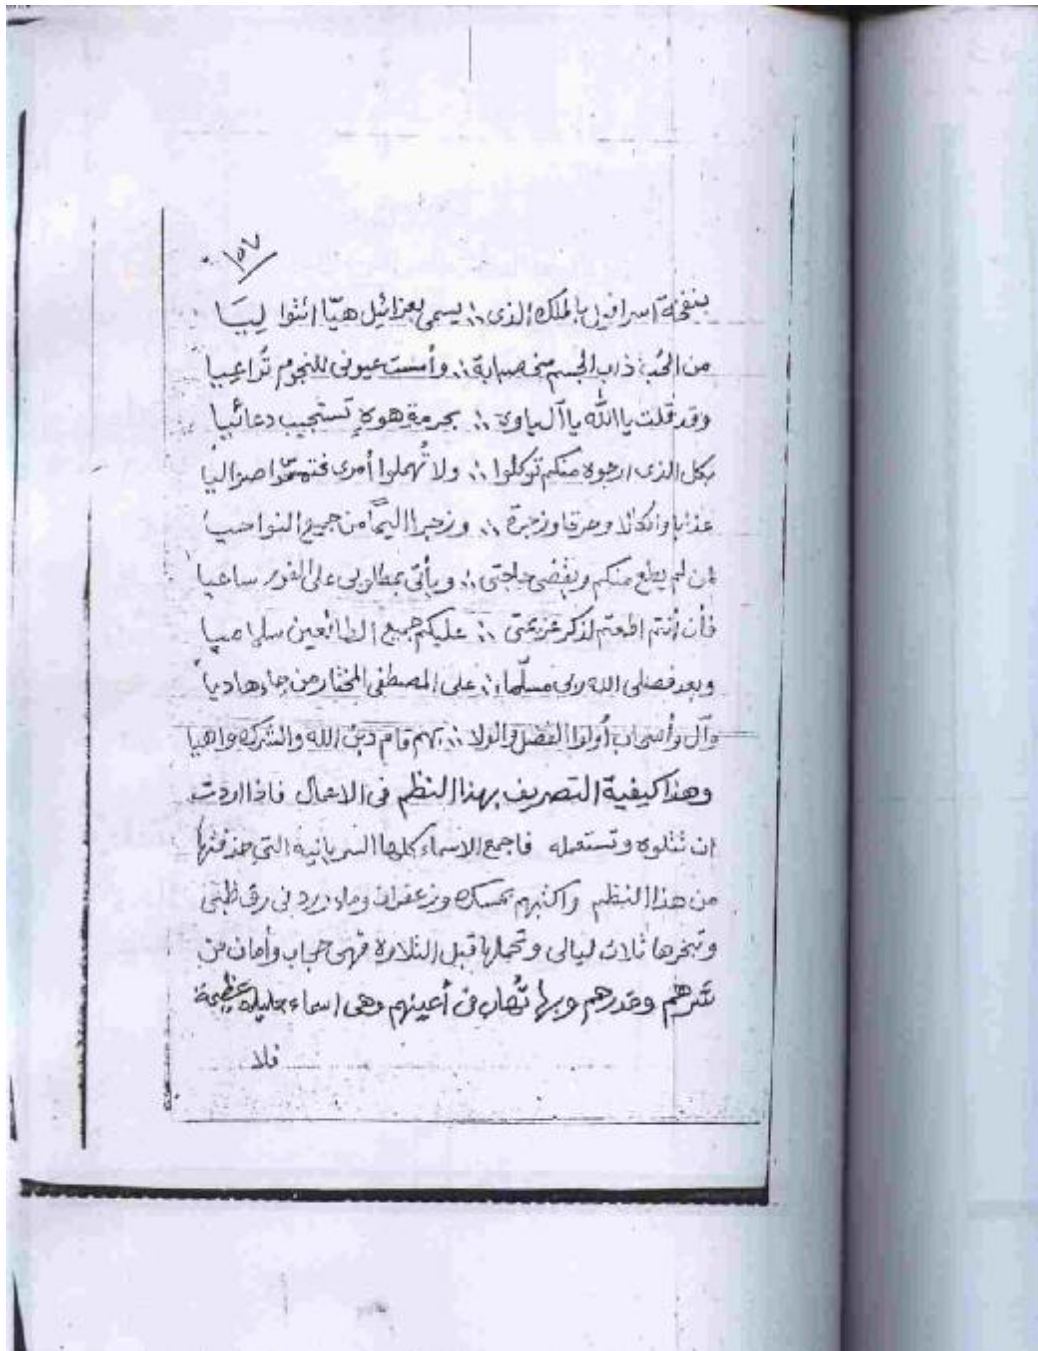 ١٥٧
بنفخة اسرافيل بالملك الذى ∴ يسمى بعزائيل هيّا ائتوا ليَا
من الحُب ذاب الجسم منى صبابة ∴ وأمست عيونى للنجوم تُراعيا
وقد قلت يا الله يا آل ياوه ∴ بحرمة هوه تستجيب دعائيا
بكل الذى ارجوه منكم توكلوا ∴ ولا تُهملوا أمرى
عذابا وانكالا وحرقا وزجرة ∴ وزجرا اليمًا من جميع النواحيا
لمن لم يطع منكم ويقضى حاجتى ∴ ويأتى بمطلوبى على الفور ساعيا
فأن أنتم اطعتم لذكر عزيمتى ∴ عليكم جميع الطائعين سلاميا
وبعد فصلى الله ربى مسلّما ∴ على المصطفى المختار من جاء هادياً
وآل وأصحاب أولوا الفضل والولا ∴ بهم قام دين الله والشرك واهيا
وهذا كيفية التصريف بهذا النظم فى الاعمال فاذا اردت
ان تتلوه وتستعمله فاجمع الاسماء كلها السريانية التى حذفتها
من هذا النظم واكتبهم بمسك وزعفران وماء ورد فى رق ظبى
وتبخرها ثلاث ليالى وتحملها قبل التلاوة فهى حجاب وأمان من
شرهم وغدرهم وبها تُهاب فى أعينهم وهى اسماء جليلة عظيمة
فلا